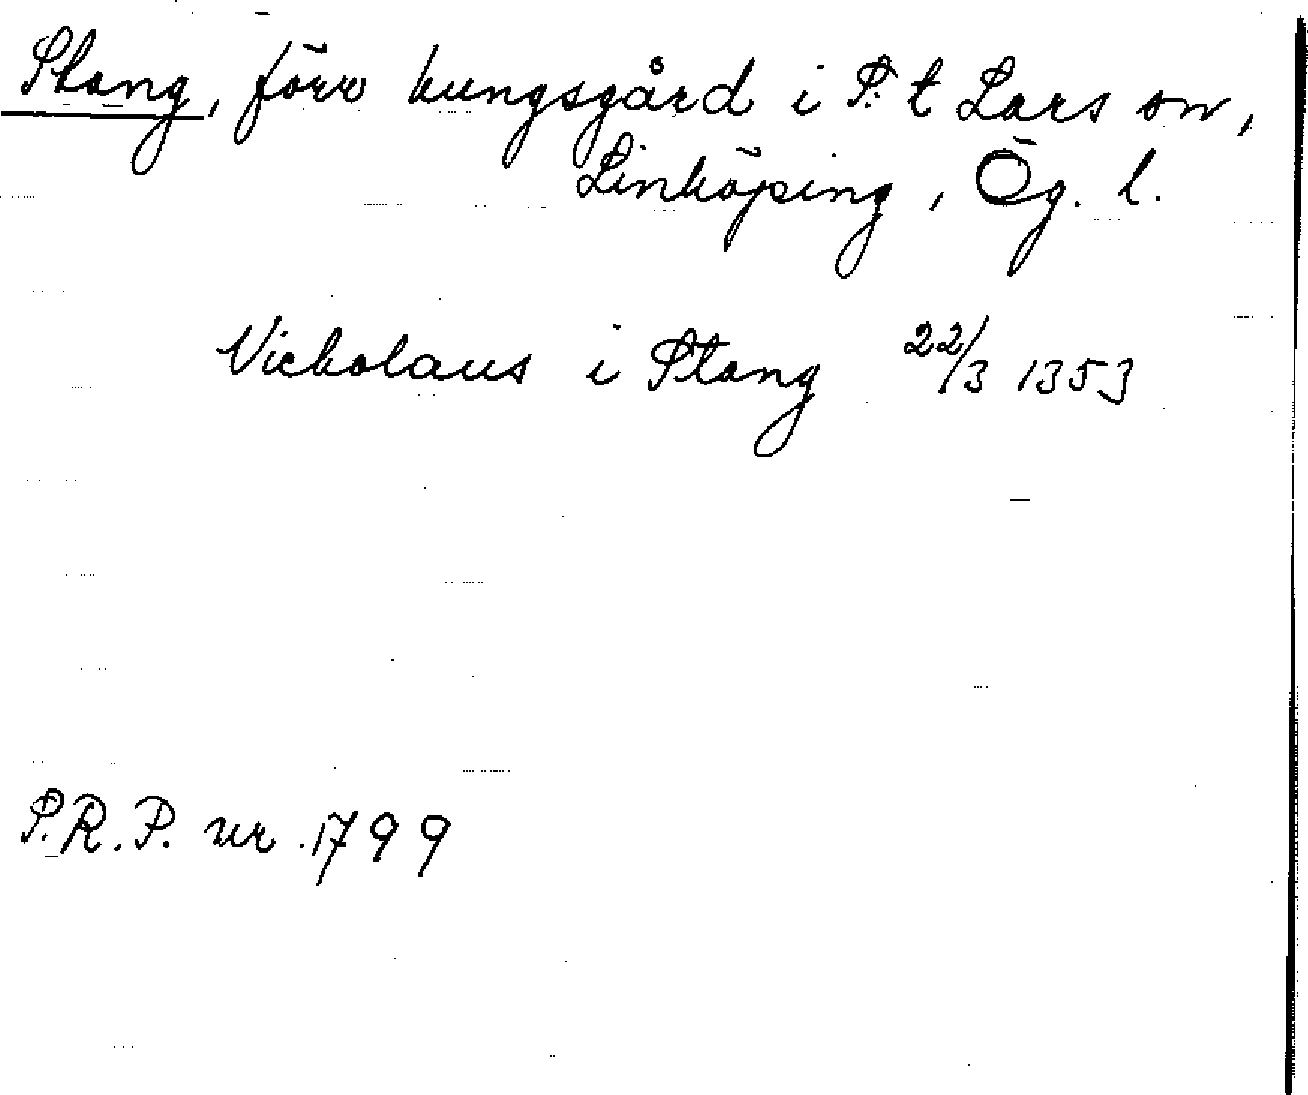 Stang, förr kungsgård i S:t Lars sn,
Linköping, Ög. l.
Nickolaus i Stang 22/3 1353
S.R.P. nr. 1799